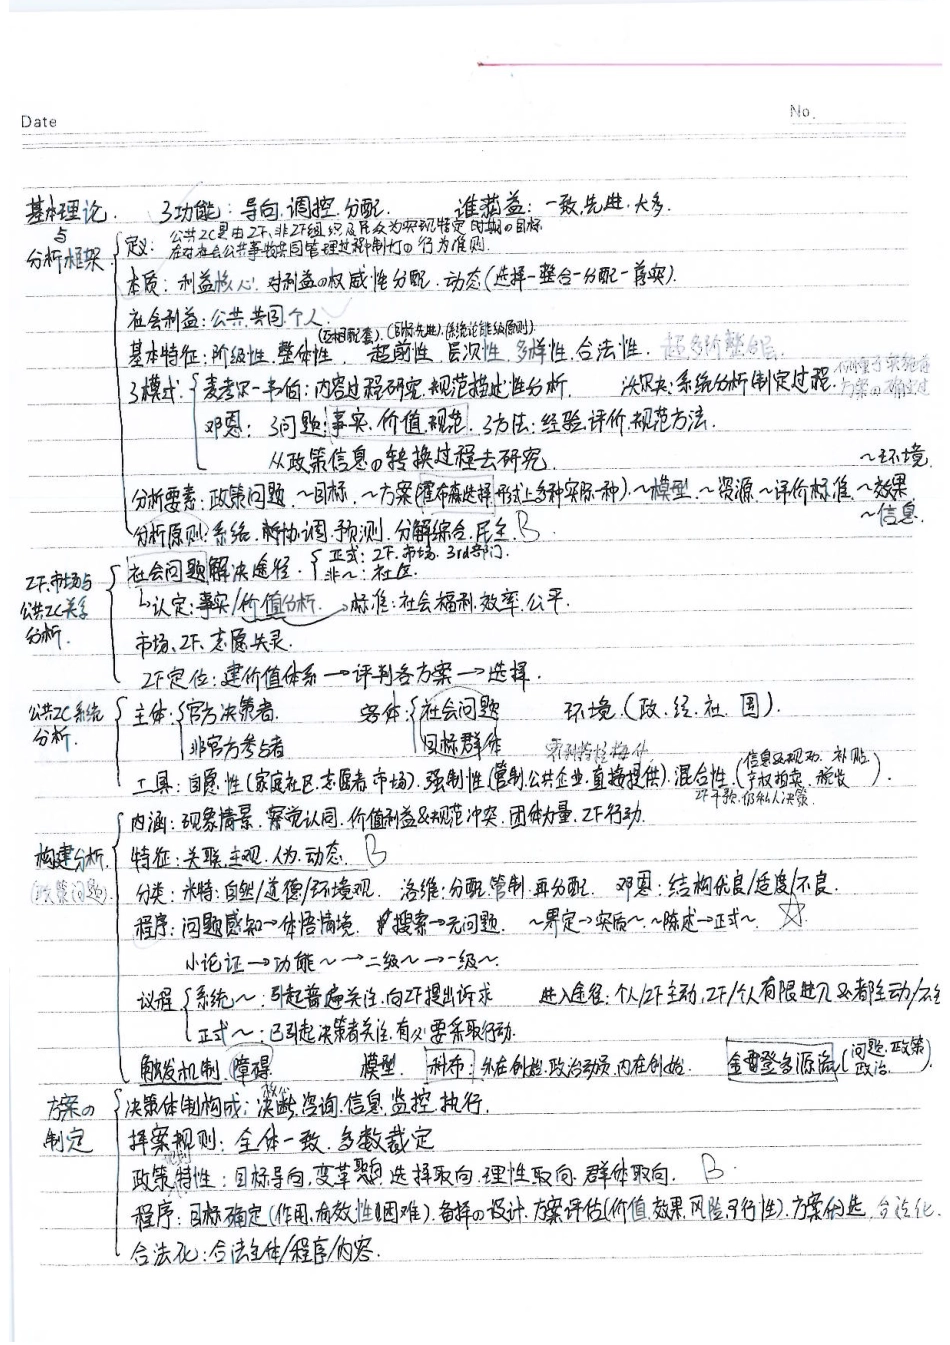 Date
No.
基本理论 3功能：导向.调控.分配. 谁获益：一致.先进.大多.
与
分析框架
定义：公共ZC是由ZF、非ZF组织及民众为实现特定时期の目标
在对社会公共事务共同管理过程中制订の行为准则.
本质：利益核心. 对利益の权威性分配. 动态(选择-整合-分配-落实).
社会利益：公共.共同.个人.
(互相配套). (目标先进). (系统论能级原则).
基本特征：阶级性.整体性. 超前性.层次性.多样性.合法性.
3模式：麦考尔-韦伯：内容过程研究.规范描述性分析. 沃尔夫：系统分析(制定过程.
邓恩：3问题：事实.价值.规范. 3方法：经验.评价.规范方法.
从政策信息の转换过程去研究.
~环境.
分析要素：政策问题.~目标.~方案(霍布森选择形式上多种实际一种).~模型.~资源.~评价标准.~效果.
~信息.
分析原则：系统.协调.预测.分解综合.民主. B
ZF.市场与
公共ZC关系
分析.
社会问题解决途径. 正式：ZF.市场.3rd部门.
非~：社区.
↳认定：事实/价值分析. →标准：社会福利.效率.公平.
市场、ZF、志愿失灵.
ZF定位：建价值体系→评判各方案→选择.
公共ZC系统
分析.
主体：官方决策者. 客体：社会问题 环境.(政.经.社.国).
非官方参与者 目标群体
工具：自愿性(家庭社区.志愿者.市场).强制性(管制.公共企业.直接提供).混合性.(信息及规劝.补贴.
产权拍卖.税收).
ZF干预.仍私人决策.
内涵：现象情景.察觉认同.价值利益&规范冲突.团体力量.ZF行动.
构建分析.
(政策问题).
特征：关联.主观.人为.动态. B
分类：米特：自然/道德/环境观. 洛维：分配.管制.再分配. 邓恩：结构优良/适度/不良.
程序：问题感知→体悟情境. 搜索→元问题. ~界定→实质~.~陈述→正式~. ☆
小论证→功能~→二级~→一级~.
议程 系统~：引起普遍关注.向ZF提出诉求 进入途径：个人/ZF主动.ZF/个人有限进入.又都主动/
正式~：已引起决策者关注.有必要采取行动.
触发机制.障碍. 模型. 科布：外在创始.政治动员.内在创始. 金登多源流(问题.政策
政治.)
方案の
制定
决策体制构成：决断.咨询.信息.监控.执行.
择案规则：全体一致.多数裁定
政策特性：目标导向.变革取向.选择取向.理性取向.群体取向. B
程序：目标确定(作用.有效性.困难).备择の设计.方案评估(价值.效果.风险.可行性).方案优选.合法化.
合法化：合法主体/程序/内容.